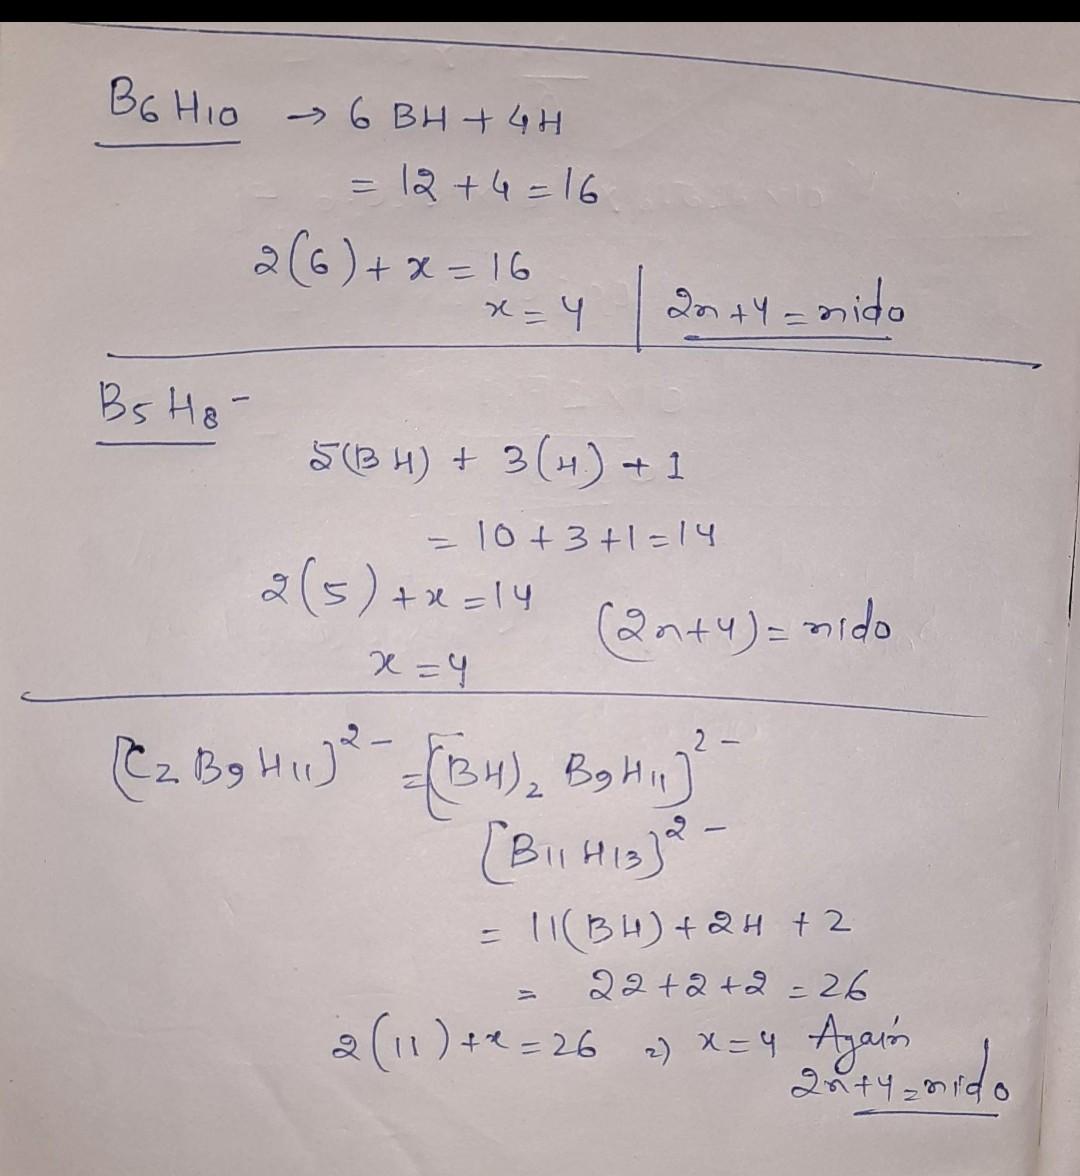 B6 H10 → 6 BH + 4H
= 12 + 4 = 16
2(6) + x = 16
x = 4 | 2n + 4 = nido
B5 H8 -
5(BH) + 3(H) + 1
= 10 + 3 + 1 = 14
2(5) + x = 14
(2n+4) = nido
x = 4
[C2 B9 H11]2- = [(BH)2 B9 H11]2-
[B11 H13]2-
= 11(BH) + 2H + 2
= 22 + 2 + 2 = 26
2(11) + x = 26 => x = 4 Again
2n + 4 = nido